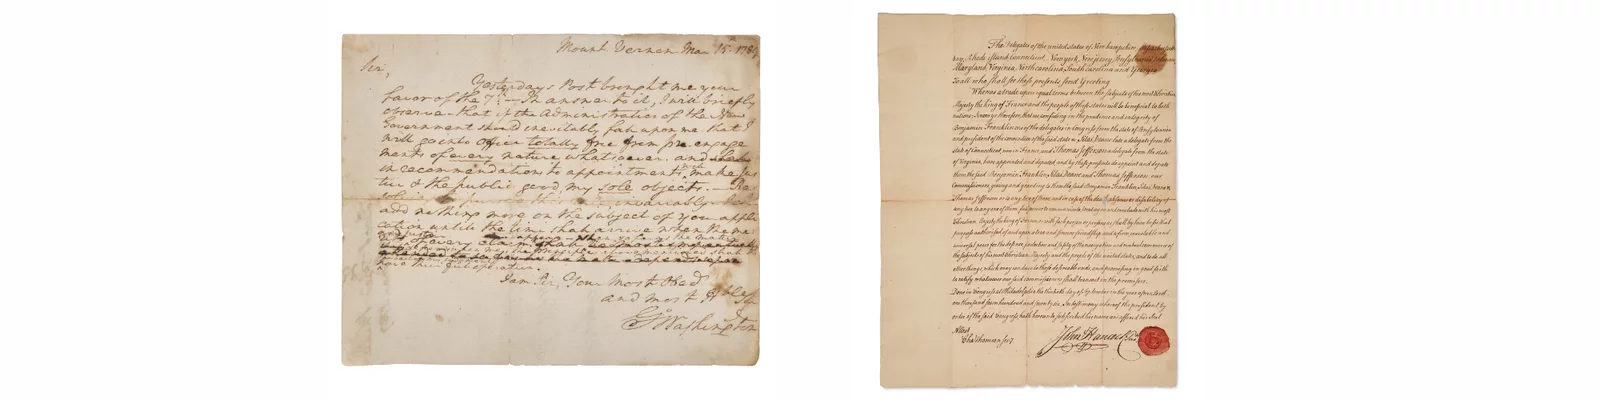 Mount Vernon Mar 15th 1789
Sir,
Yesterdays Post brought me your
favor of the 7th — In answer to it, I will briefly
observe that if the Administration of the New
Government should inevitably fall upon me that I
will go into office totally free from pre engage
ments of every nature whatsoever. and
in recommendations to appointments will make jus
tice & the public good, my sole objects. — Re
invariably
add nothing more on the subject of your appli
cation until the time shall arrive when the
of every claim
have their full operation.
I am Sir, Your Most Obed
and most Hble Ser
Go Washington
The Delegates of the united states of New hampshire, Massachusetts
bay, Rhode island Connecticut, New york, New jersey, Pennsylvania, Delaware
Maryland, Virginia, North carolina, South Carolina and Georgia
To all who shall see these presents send Greeting
Whereas a trade upon equal terms between the subjects of his most Christian
Majesty the king of France and the people of these states will be beneficial to both
nations; Know ye therefore, that we confiding in the prudence and integrity of
Benjamin Franklin one of the delegates in Congress from the state of Pensylvania
and president of the convention of the said state &c, Silas Deane late a delegate from the
state of Connecticut now in France, and Thomas Jefferson a delegate from the state
of Virginia, have appointed and deputed, and by these presents do appoint and depute
them the said Benjamin Franklin, Silas Deane and Thomas Jefferson our
Commissioners, giving and granting to them the said Benjamin Franklin, Silas Deane &
Thomas Jefferson or to any two of them, and in case of the death absence or disability of
any two, to any one of them, full power to communicate, treat, agree and conclude with his most
Christian Majesty the king of France, or with such person or persons as shall by him be for that
purpose authorised, of and upon a true and sincere friendship, and a firm inviolable and
universal peace for the defence, protection and safety of the navigation and mutual commerce of
the subjects of his most Christian Majesty and the people of the united states, and to do all
other things, which may conduce to those desireable ends, and promising in good faith
to ratify whatsoever our said commissioners shall transact in the premisses.
Done in Congress at Philadelphia the thirtieth day of September in the year of our Lord
one thousand seven hundred and seventy six. In testimony whereof the president by
order of the said Congress hath hereunto subscribed his name and affixed his Seal
Attest
Cha Thomson secy
John Hancock